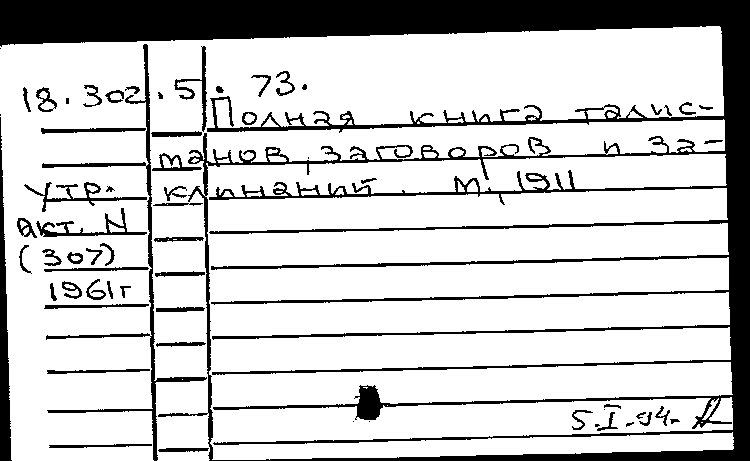 18.302.5.73.
Полная книга талис-
манов, заговоров и за-
клинаний. М., 1911
Утр.
акт. N
(307)
1961г
5.I.-94-